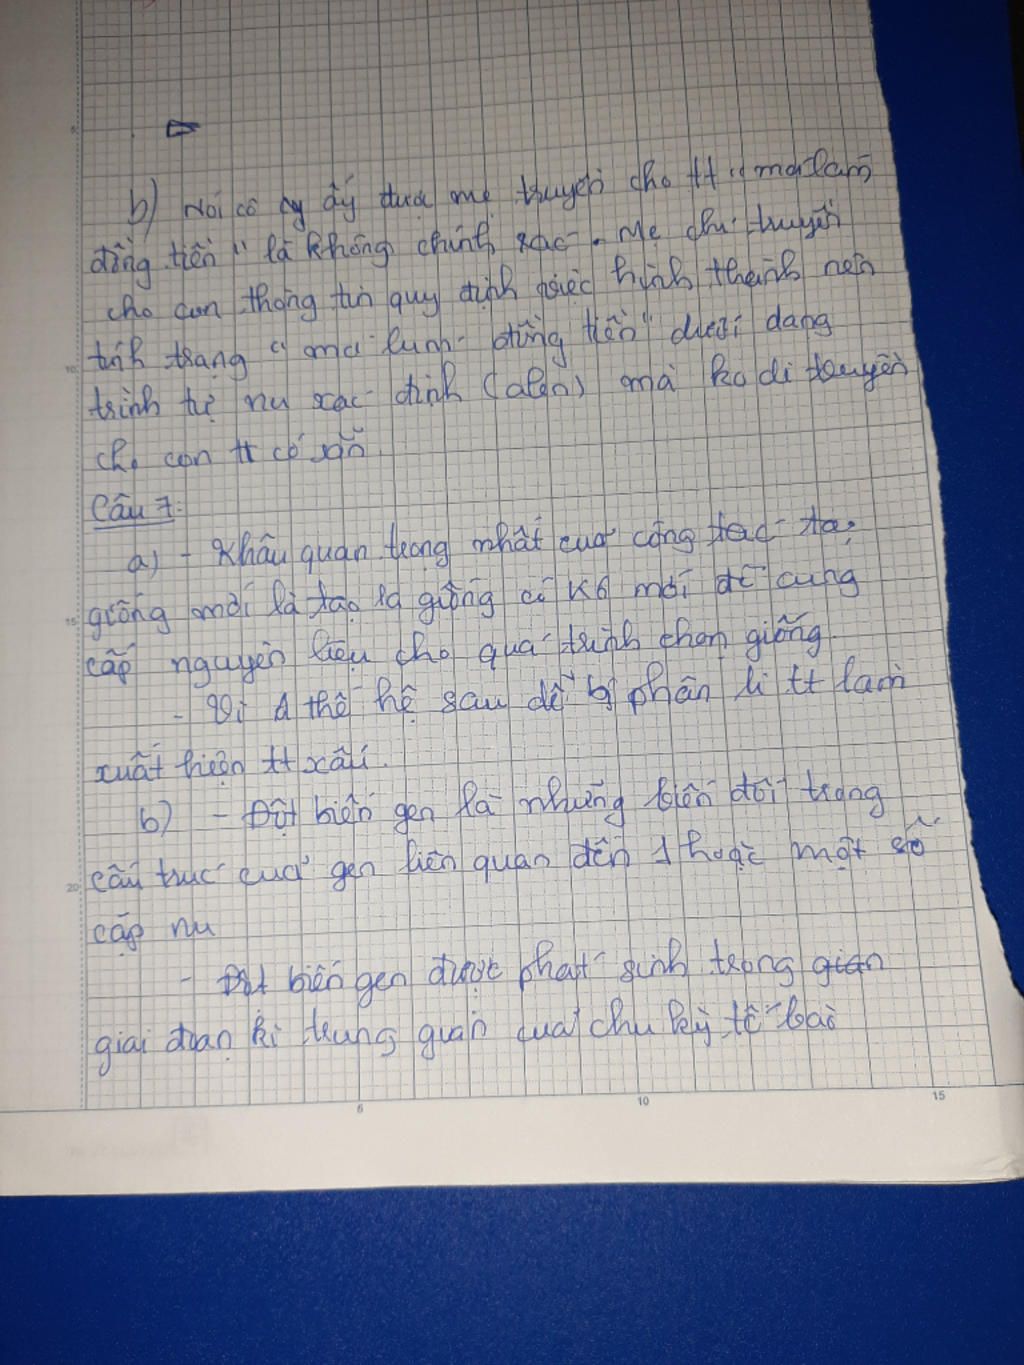 b) Nói cô ấy được mẹ truyền cho tt "má lúm
đồng tiền" là không chính xác. Mẹ chỉ truyền
cho con thông tin quy định việc hình thành nên
tính trạng "má lúm đồng tiền" dưới dạng
trình tự nu xác định (alen) mà ko di truyền
cho con tt có sẵn
Câu 7:
a) - Khâu quan trọng nhất của công tác tạo
giống mới là tạo ra giống có KG mới để cung
cấp nguyên liệu cho quá trình chọn giống
- Vì ở thế hệ sau dễ bị phân li tt làm
xuất hiện tt xấu.
b) - Đột biến gen là những biến đổi trong
cấu trúc của gen liên quan đến 1 hoặc một số
cặp nu
- Đột biến gen được phát sinh trong
giai đoạn kì trung gian của chu kỳ tế bào
5
10
15
20
5
10
15